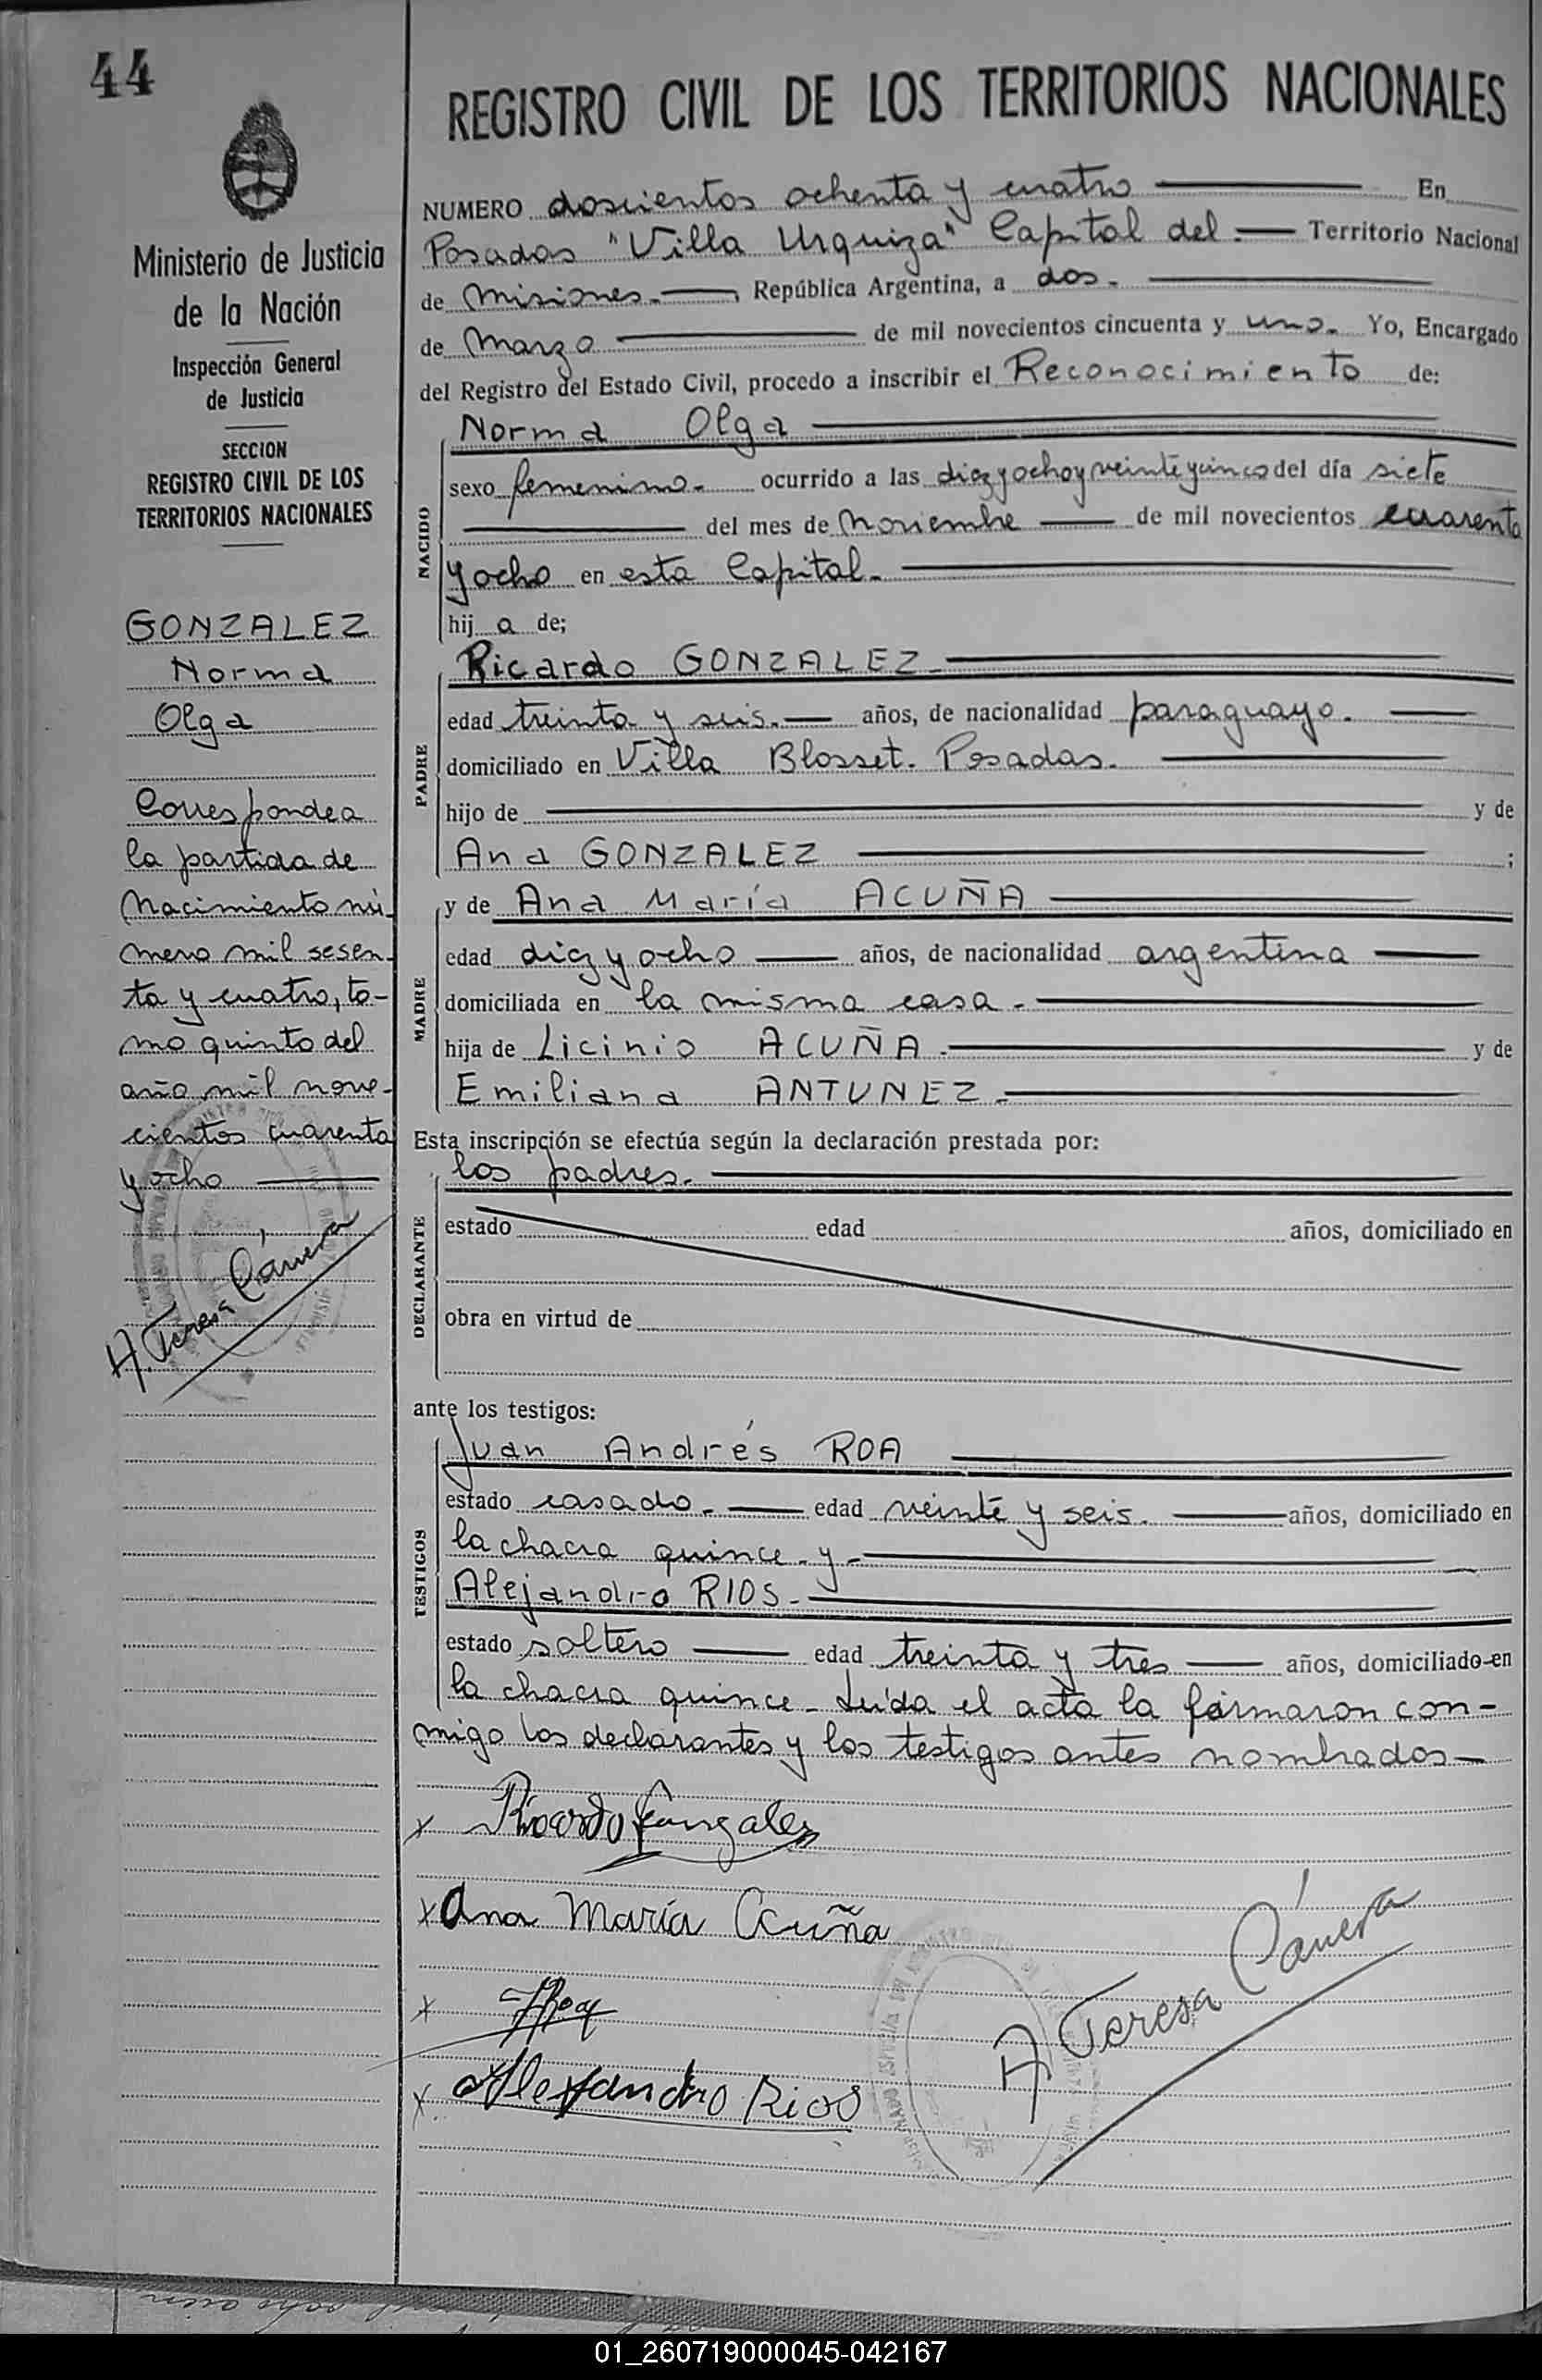 44
Ministerio de Justicia
de la Nación
Inspección General
de Justicia
SECCION
REGISTRO CIVIL DE LOS
TERRITORIOS NACIONALES
GONZALEZ
Norma
Olga
Corresponde a
la partida de
Nacimiento nú-
mero mil sesen-
ta y cuatro, to-
mo quinto del
año mil nove-
cientos cuarenta
y ocho
A. Teresa
REGISTRO CIVIL DE LOS TERRITORIOS NACIONALES
NUMERO doscientos ochenta y cuatro En
Posadas "Villa Urquiza" Capital del.- Territorio Nacional
de Misiones.- República Argentina, a dos.-
de Marzo de mil novecientos cincuenta y uno. Yo, Encargado
del Registro del Estado Civil, procedo a inscribir el Reconocimiento de:
Norma Olga
NACIDO
sexo femenino.- ocurrido a las diez y ocho y veinte y cinco del día siete
del mes de Noviembre de mil novecientos cuarenta
y ocho en esta Capital.-
hij a de;
Ricardo GONZALEZ.-
PADRE
edad treinta y seis.- años, de nacionalidad paraguayo.
domiciliado en Villa Blosset. Posadas.
hijo de y de
Ana GONZALEZ ;
y de Ana María ACUÑA
MADRE
edad diez y ocho años, de nacionalidad argentina
domiciliada en la misma casa.-
hija de Licinio ACUÑA.- y de
Emiliana ANTUNEZ.-
Esta inscripción se efectúa según la declaración prestada por:
los padres.-
DECLARANTE
estado edad años, domiciliado en
obra en virtud de
ante los testigos:
Juan Andrés ROA
TESTIGOS
estado casado.- edad veinte y seis. años, domiciliado en
la chacra quince.- y.-
Alejandro RIOS.-
estado soltero edad treinta y tres años, domiciliado en
la chacra quince.- Leída el acta la firmaron con-
migo los declarantes y los testigos antes nombrados
x Ricardo Gonzalez
x Ana María Acuña
x
x Alejandro Rios
A Teresa
01_260719000045-042167